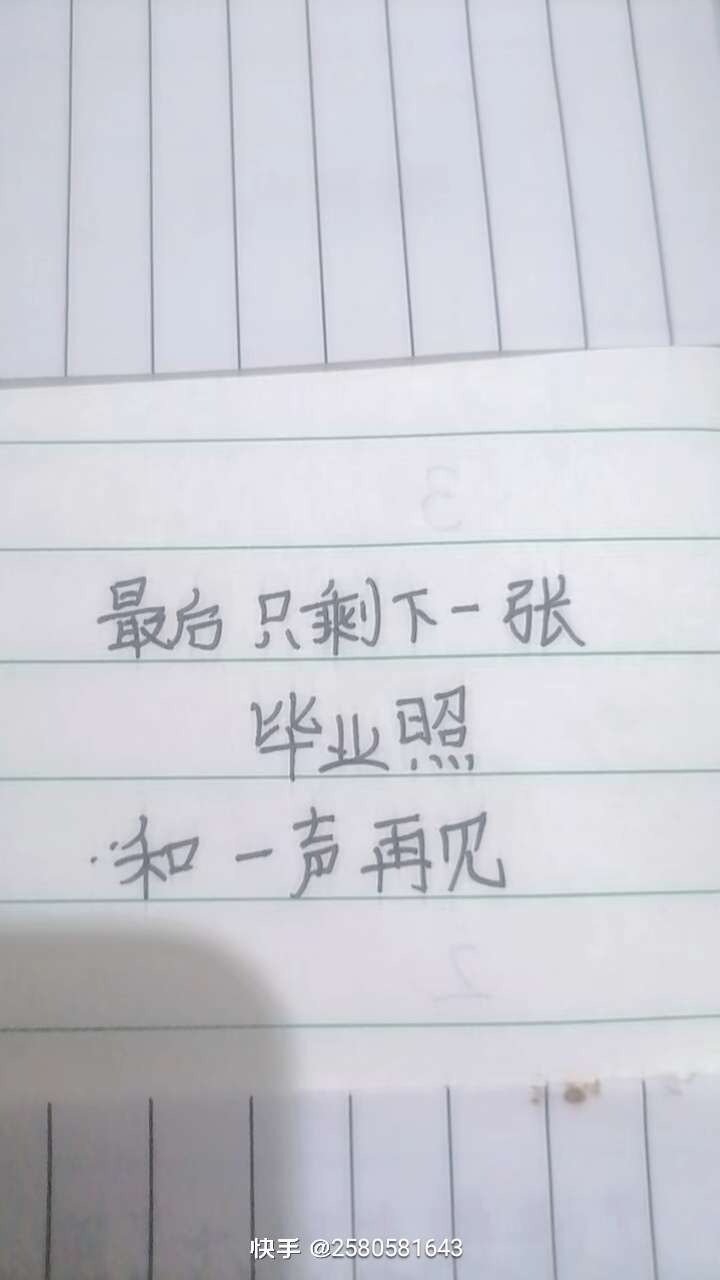 最后只剩下一张
毕业照
··和一声再见
快手 @2580581643